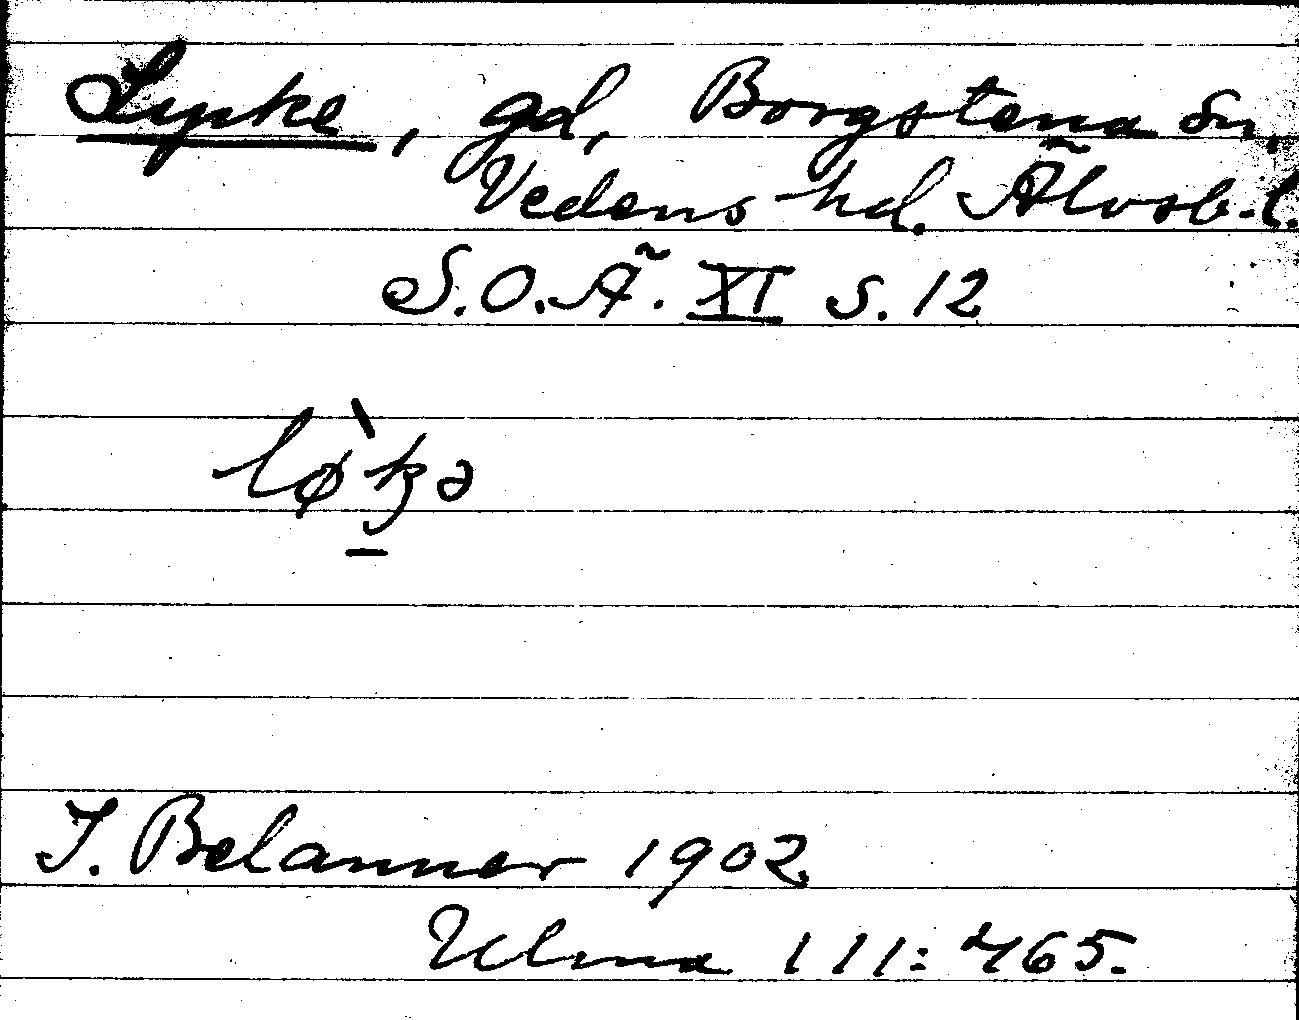 Lyske, gd, Borgstena sn,
Vedens hd. Älvsb. l.
S.O.Ä. XI s. 12
lø̀kə
T. Belanner 1902.
Ulma 111: 465.